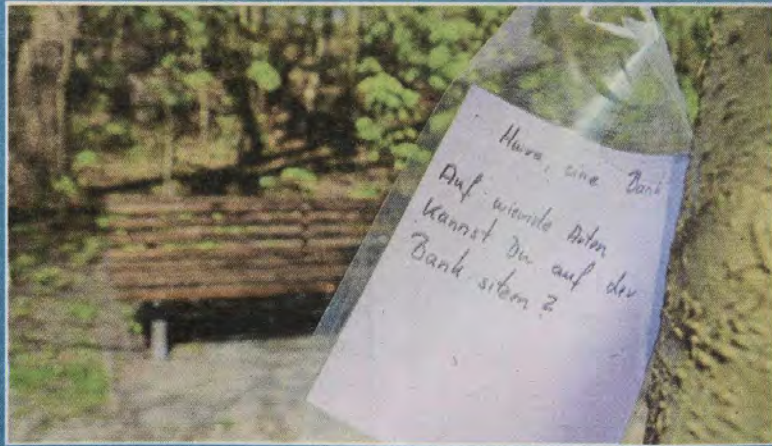 Hurra, eine Bank
Auf wieviele Arten
kannst Du auf der
Bank sitzen?